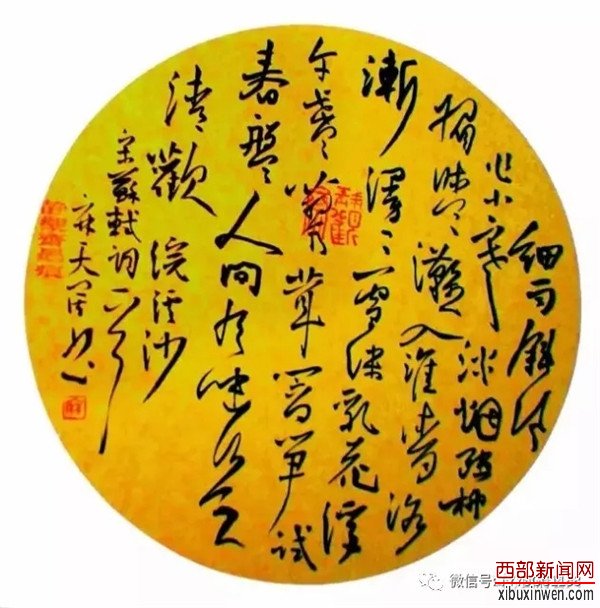 細雨斜风
作小寒淡烟疏柳
媚晴灘入淮清洛
漸漫漫雪沫乳花浮
午盏蓼茸蒿笋试
春盤人间有味是
清歡浣溪沙
宋蘇軾词一首
西部新闻网
xibuxinwen.com
微信号